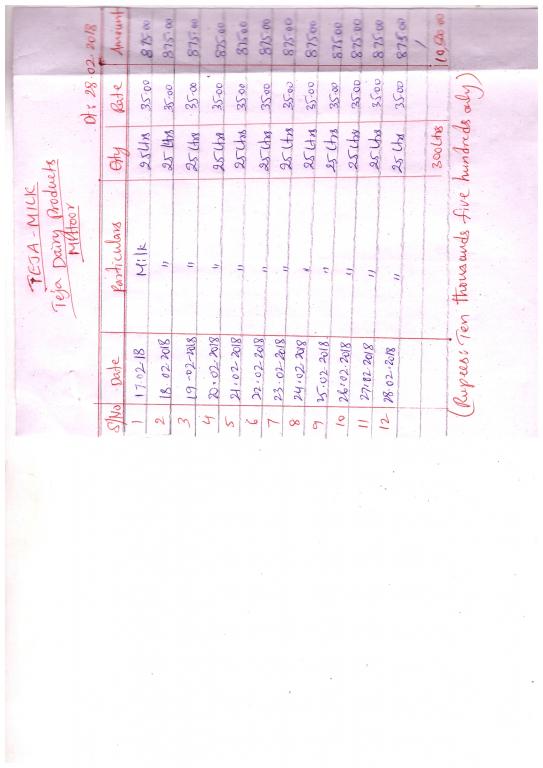 TEJA-MILK
Teja Dairy Products
Mittoor
Dt: 28.02.2018
S/No Date Particulars Qty Rate Amount
1 17.02.18 Milk 25 Ltrs 35.00 875.00
2 18.02.2018 " 25 Ltrs 35.00 875.00
3 19.02.2018 " 25 Ltrs 35.00 875.00
4 20.02.2018 " 25 Ltrs 35.00 875.00
5 21.02.2018 " 25 Ltrs 35.00 875.00
6 22.02.2018 " 25 Ltrs 35.00 875.00
7 23.02.2018 " 25 Ltrs 35.00 875.00
8 24.02.2018 " 25 Ltrs 35.00 875.00
9 25.02.2018 " 25 Ltrs 35.00 875.00
10 26.02.2018 " 25 Ltrs 35.00 875.00
11 27.02.2018 " 25 Ltrs 35.00 875.00
12 28.02.2018 " 25 Ltrs 35.00 875.00
300 Ltrs 10,500.00
(Rupees: Ten thousands five hundreds only)